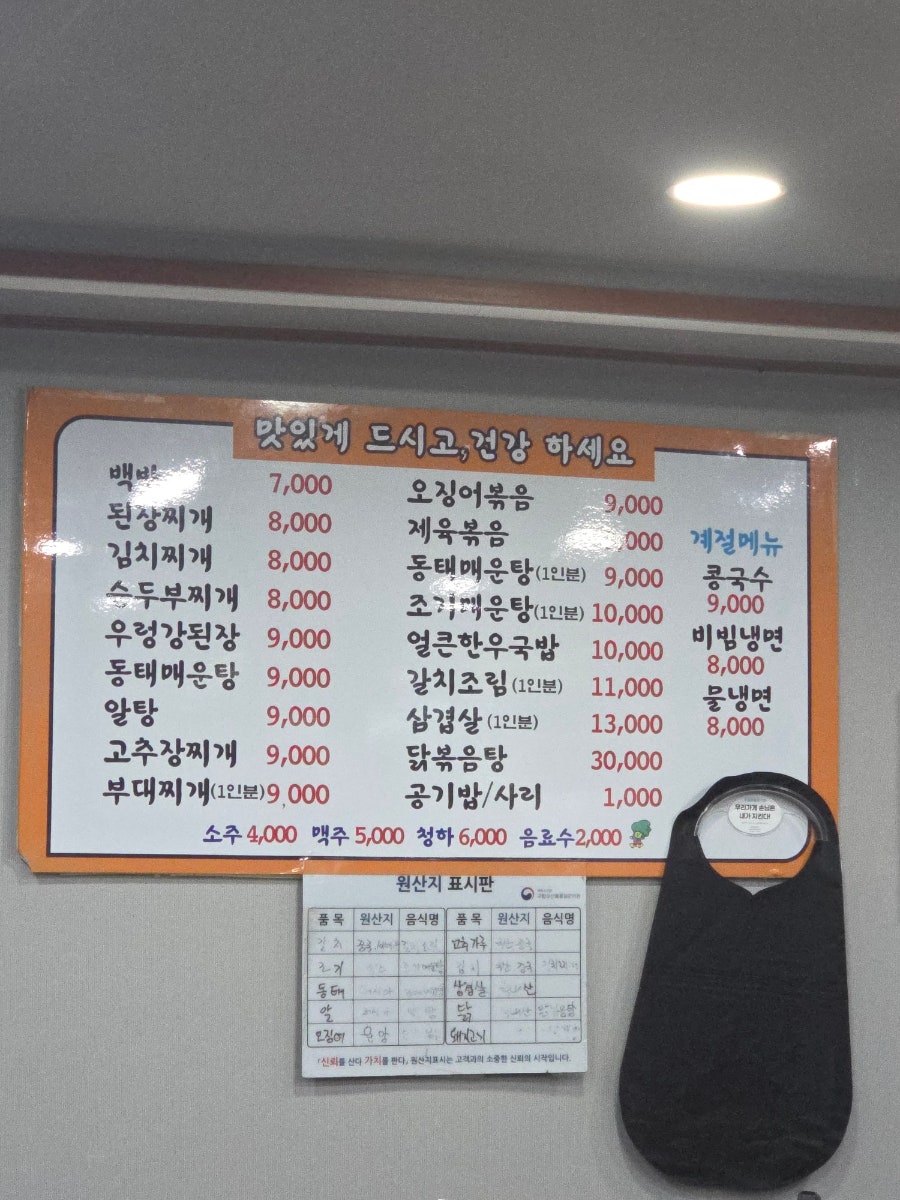 맛있게 드시고,건강 하세요
7,000
된장찌개 8,000
김치찌개 8,000
순두부찌개 8,000
우렁강된장 9,000
동태매운탕 9,000
알탕 9,000
고추장찌개 9,000
부대찌개(1인분) 9,000
오징어볶음 9,000
제육볶음
동태매운탕(1인분) 9,000
조기매운탕(1인분) 10,000
얼큰한우국밥 10,000
갈치조림(1인분) 11,000
삼겹살(1인분) 13,000
닭볶음탕 30,000
공기밥/사리 1,000
계절메뉴
콩국수
9,000
비빔냉면
8,000
물냉면
8,000
소주 4,000 맥주 5,000 청하 6,000 음료수2,000
원산지 표시판
품 목 원산지 음식명 품 목 원산지 음식명
갈치 고추가루
조기
동태 삼겹살
알 닭
오징어 돼지고기
「신뢰를 산다 가치를 판다」 원산지표시는 고객과의 소중한 신뢰의 시작입니다.
우리가게 손님은
내가 지킨다!